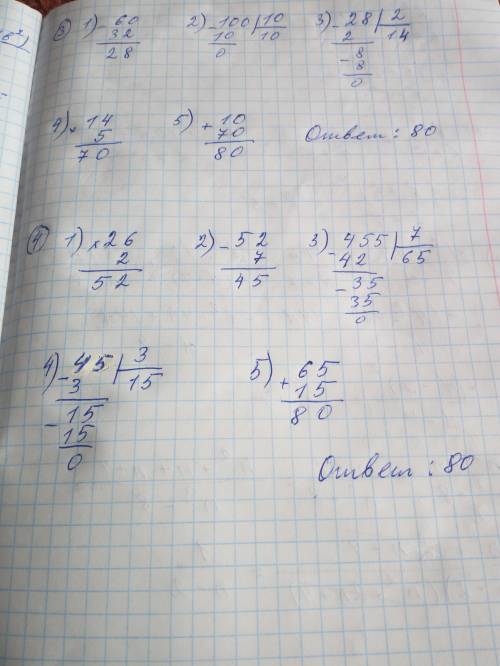 ③ 1) - 60 2) - 100 | 10 3) - 28 | 2
32 10 10 2 14
28 0 - 8
8
0
4) × 14 5) + 10 Ответ: 80
5 70
70 80
④ 1) × 26 2) - 52 3) - 455 | 7
2 7 42 65
52 45 - 35
35
0
4) - 45 | 3 5) + 65
3 15 15
- 15 80
15
0
Ответ: 80